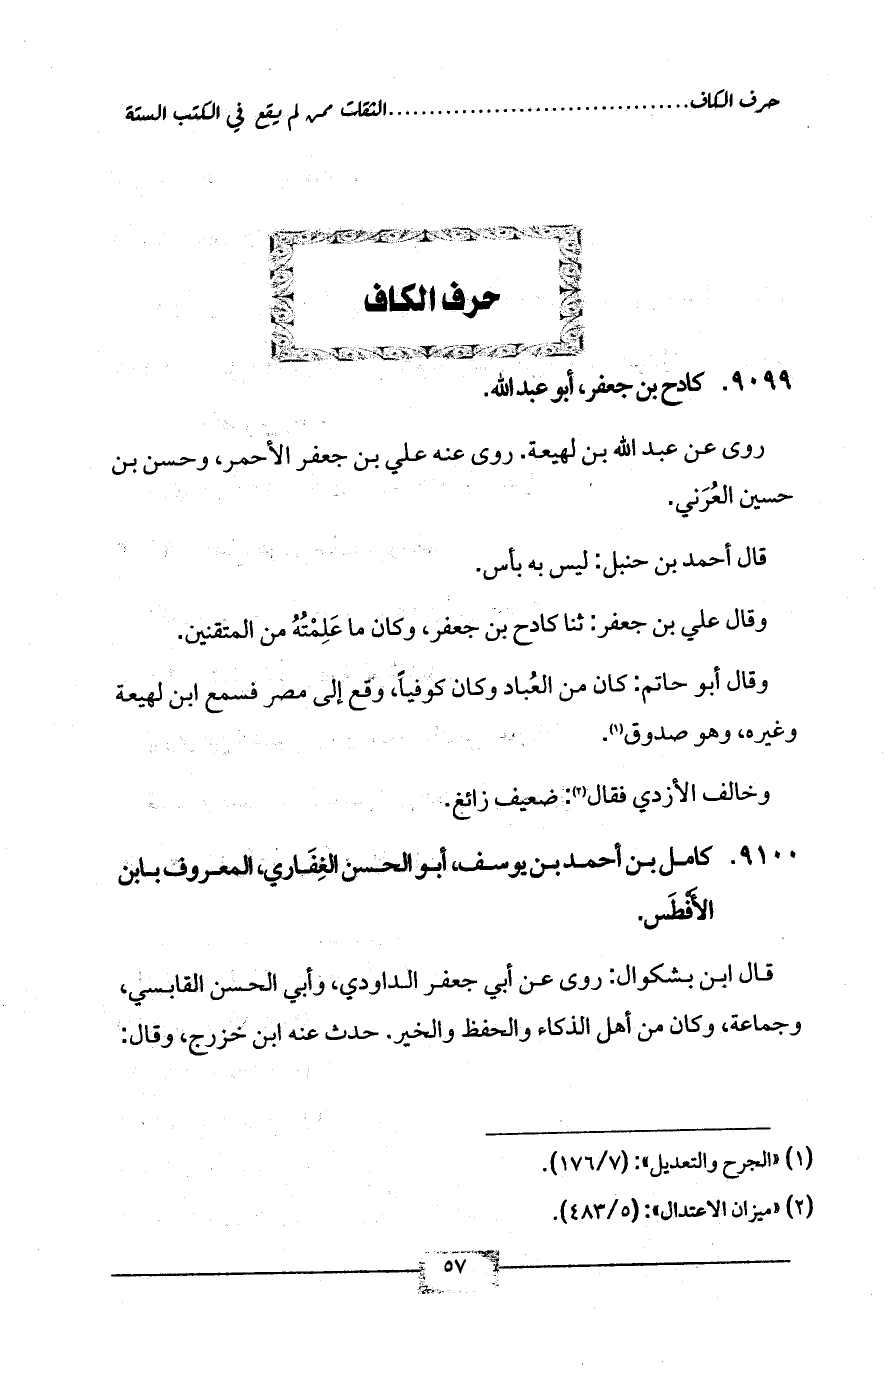 حرف الكاف.....................................الثقات ممن لم يقع في الكتب الستة
حرف الكاف
٩٠٩٩. كادح بن جعفر، أبو عبد الله.
روى عن عبد الله بن لهيعة. روى عنه علي بن جعفر الأحمر، وحسن بن
حسين العُرَني.
قال أحمد بن حنبل: ليس به بأس.
وقال علي بن جعفر: ثنا كادح بن جعفر، وكان ما عَلِمْتُهُ من المتقنين.
وقال أبو حاتم: كان من العُباد وكان كوفياً، وقع إلى مصر فسمع ابن لهيعة
وغيره، وهو صدوق(١).
وخالف الأزدي فقال(٢): ضعيف زائغ.
٩١٠٠. كامل بن أحمد بن يوسف، أبو الحسن الغِفَاري، المعروف بابن
الأَفْطَس.
قال ابن بشكوال: روى عن أبي جعفر الداودي، وأبي الحسن القابسي،
وجماعة، وكان من أهل الذكاء والحفظ والخير. حدث عنه ابن خزرج، وقال:
(١) «الجرح والتعديل»: (١٧٦/٧).
(٢) «ميزان الاعتدال»: (٤٨٣/٥).
٥٧